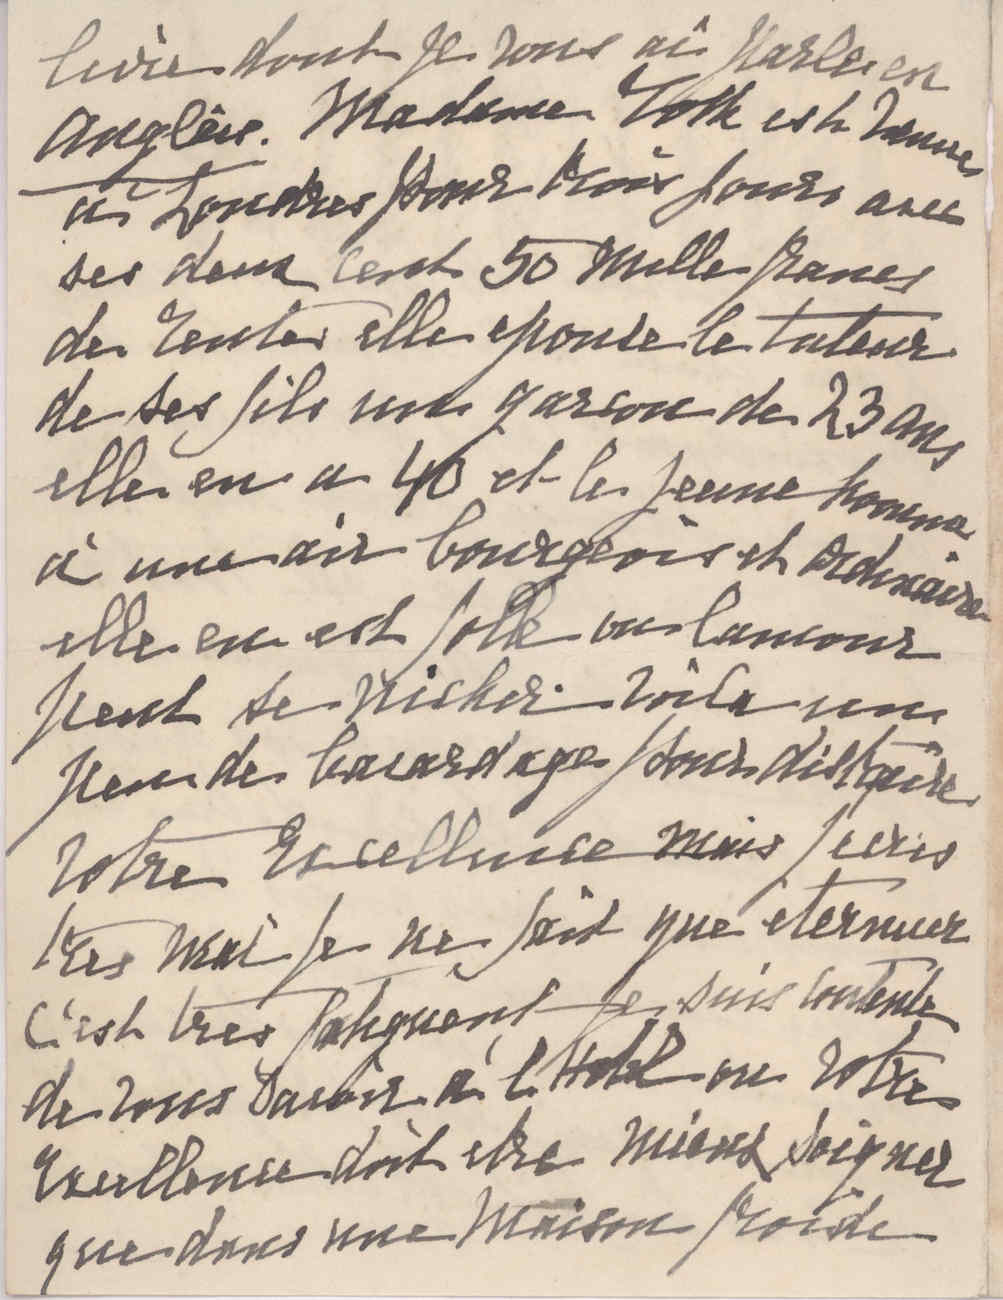 livre dont je vous ai parler en
anglais. Madame Tolk est venue
à Londres pour trois jours avec
ses deux cent 50 mille francs
de rente elle epouse le tuteur
de ses fils un garson de 23 ans
elle en a 40 et le jeune homme
à une air bourgeois et ordinaire
elle en est folle ou lamour
peut se nicher. voila un
peu de bavardage pour distraire
votre Excellence mais je suis
tres mal je ne fait que eternuer
c'est tres fatiguent je suis contente
de vous savoir à l'Hotel ou votre
Excellence doit etre mieux soigner
que dans une maison froide